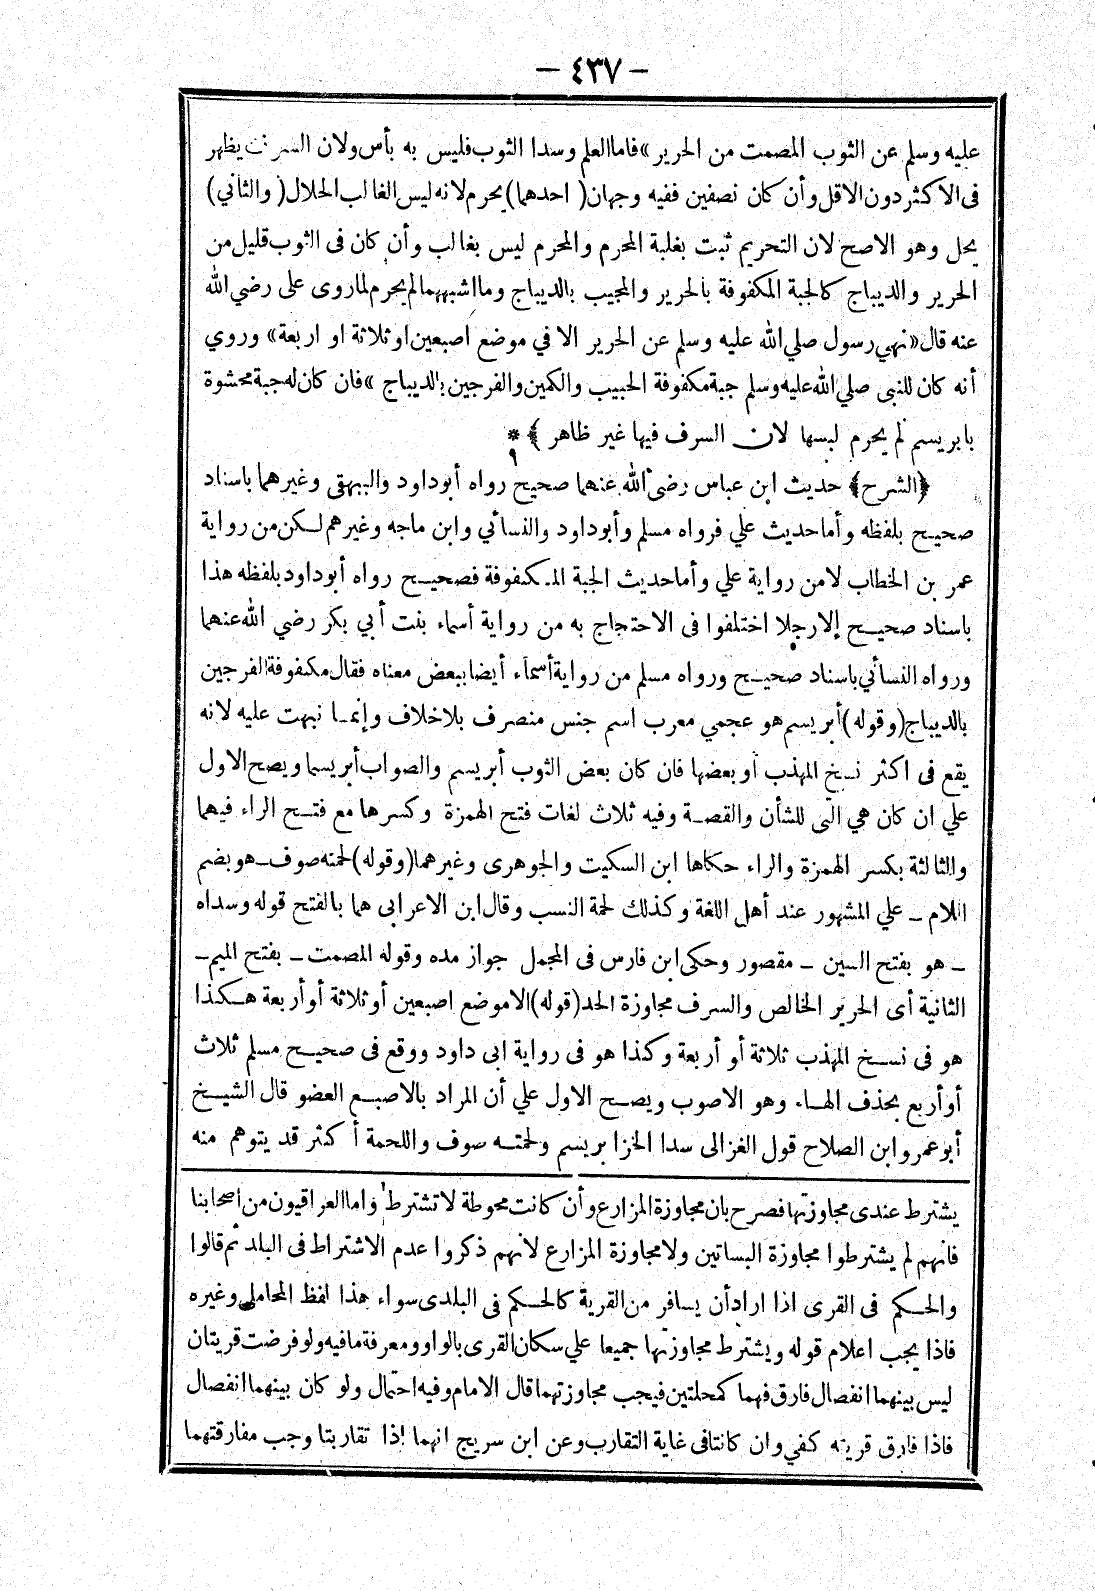 — ٤٣٧ —
عليه وسلم عن الثوب المصمت من الحرير » فاما العلم وسدا الثوب فليس به بأس ولان السرف يظهر
فى الاكثر دون الاقل وأن كان نصفين ففيه وجهان ( احدهما ) يحرم لانه ليس الغالب الحلال ( والثاني )
يحل وهو الاصح لان التحريم ثبت بغلبة المحرم والمحرم ليس بغالب وأن كان فى الثوب قليل من
الحرير والديباج كالجبة المكفوفة بالحرير والمجيب بالديباج وما اشبههما لم يحرم لما روى على رضي الله
عنه قال « نهى رسول صلي الله عليه وسلم عن الحرير الا في موضع اصبعين او ثلاثة او اربعة » وروي
أنه كان للنبى صلي الله عليه وسلم جبة مكفوفة الجيب والكمين والفرجين بالديباج » فان كان له جبة محشوة
بابريسم لم يحرم لبسها لان السرف فيها غير ظاهر ﴾ *
﴿ الشرح ﴾ حديث ابن عباس رضى الله عنهما صحيح رواه أبو داود والبيهقى وغيرهما باسناد
صحيح بلفظه وأما حديث علي فرواه مسلم وأبو داود والنسائي وابن ماجه وغيرهم لكن من رواية
عمر بن الخطاب لا من رواية علي وأما حديث الجبة المكفوفة فصحيح رواه أبو داود بلفظه هذا
باسناد صحيح إلا رجلا اختلفوا فى الاحتجاج به من رواية أسماء بنت أبي بكر رضي الله عنهما
ورواه النسائي باسناد صحيح ورواه مسلم من رواية أسماء أيضا ببعض معناه فقال مكفوفة الفرجين
بالديباج ( وقوله ) أبريسم هو عجمي معرب اسم جنس منصرف بلا خلاف وإنما نبهت عليه لانه
يقع فى اكثر نسخ المهذب أو بعضها فان كان بعض الثوب أبريسم والصواب أبريسما ويصح الاول
علي ان كان هي التى للشأن والقصة وفيه ثلاث لغات فتح الهمزة وكسرها مع فتح الراء فيهما
والثالثة بكسر الهمزة والراء حكاها ابن السكيت والجوهرى وغيرهما ( وقوله ) لحمته صوف - هو بضم
اللام - علي المشهور عند أهل اللغة وكذلك لحمة النسب وقال ابن الاعرابى هما بالفتح قوله وسداه
- هو بفتح السين - مقصور وحكى ابن فارس فى المجمل جواز مده وقوله المصمت - بفتح الميم -
الثانية أى الحرير الخالص والسرف مجاوزة الحد ( قوله ) الا موضع اصبعين أو ثلاثة أو أربعة هكذا
هو فى نسخ المهذب ثلاثة أو أربعة وكذا هو فى رواية ابى داود ووقع فى صحيح مسلم ثلاث
أو أربع بحذف الهاء وهو الاصوب ويصح الاول علي أن المراد بالاصبع العضو قال الشيخ
أبو عمرو ابن الصلاح قول الغزالى سدا الخز ابريسم ولحمته صوف واللحمة أكثر قد يتوهم منه
يشترط عندى مجاوزتها فصرح بان مجاوزة المزارع وأن كانت محوطة لا تشترط واما العراقيون من اصحابنا
فانهم لم يشترطوا مجاوزة البساتين ولا مجاوزة المزارع لانهم ذكروا عدم الاشتراط فى البلد ثم قالوا
والحكم فى القرى اذا اراد أن يسافر من القرية كالحكم فى البلدى سواء هذا لفظ المحاملي وغيره
فاذا يجب اعلام قوله ويشترط مجاوزتها جميعا علي سكان القرى بالواو ومعرفة ما فيه ولو فرضت قريتان
ليس بينهما انفصال فارق فهما كمحلتين فيجب مجاوزتهما قال الامام وفيه احتمال ولو كان بينهما انفصال
فاذا فارق قريته كفي وان كانتا فى غاية التقارب وعن ابن سريج انهما إذا تقاربتا وجب مفارقتهما